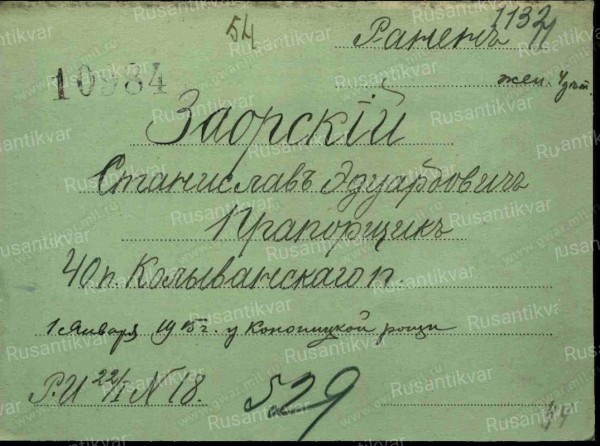 54
Раненъ
1132
10984
жен.
Заорскій
Станиславъ Эдуардовичъ
Прапорщикъ
40 п. Колыванскаго п.
1 Января 1915 г. у Конопицкой рощи
Р.И 22/I N 18.
529